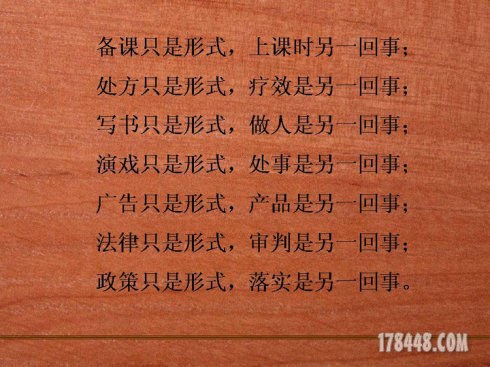 备课只是形式，上课时另一回事；
处方只是形式，疗效是另一回事；
写书只是形式，做人是另一回事；
演戏只是形式，处事是另一回事；
广告只是形式，产品是另一回事；
法律只是形式，审判是另一回事；
政策只是形式，落实是另一回事。
178448.COM